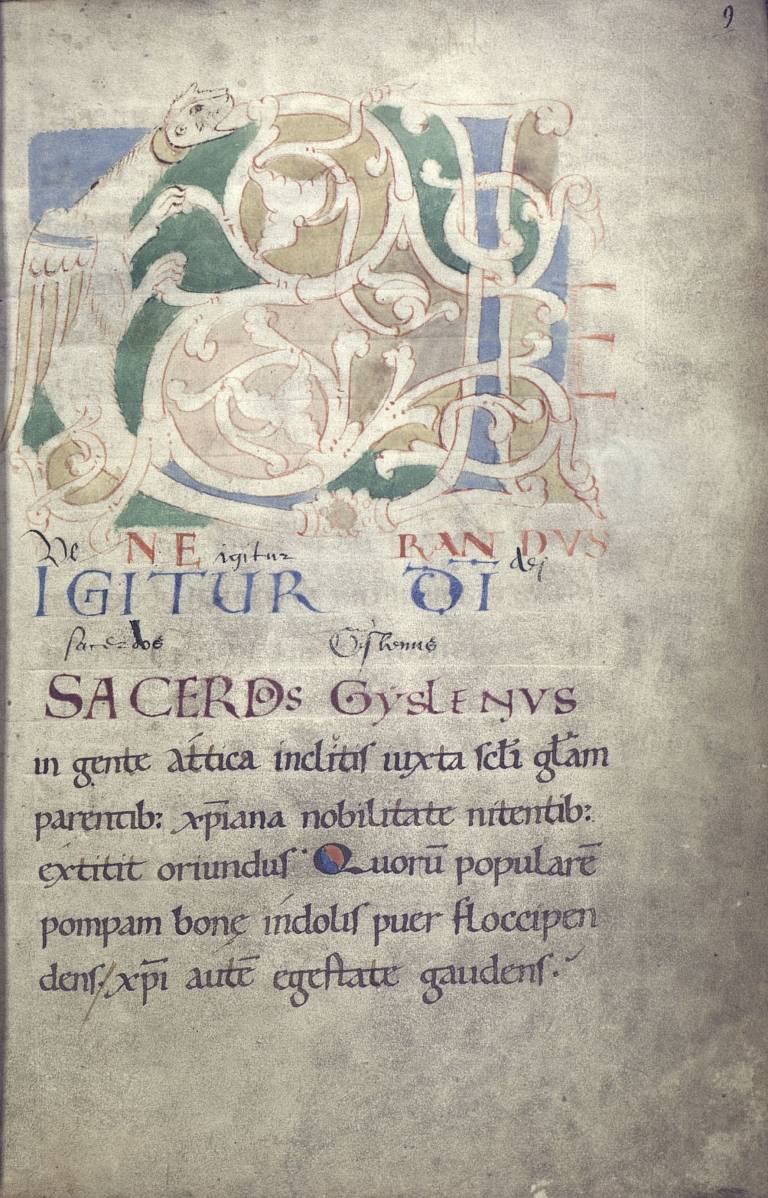 9
VE
Ve NE igitur RANDVS
IGITUR D̄I dei
sacerdos Gislenus
SACERDOS GYSLENVS
in gente attica inclitis iuxta sc̄li gl̄am
parentib: xp̄iana nobilitate nitentib:
extitit oriundus. Quorū popularē
pompam bonę indolis puer floccipen
dens, xp̄i autē egestate gaudens.